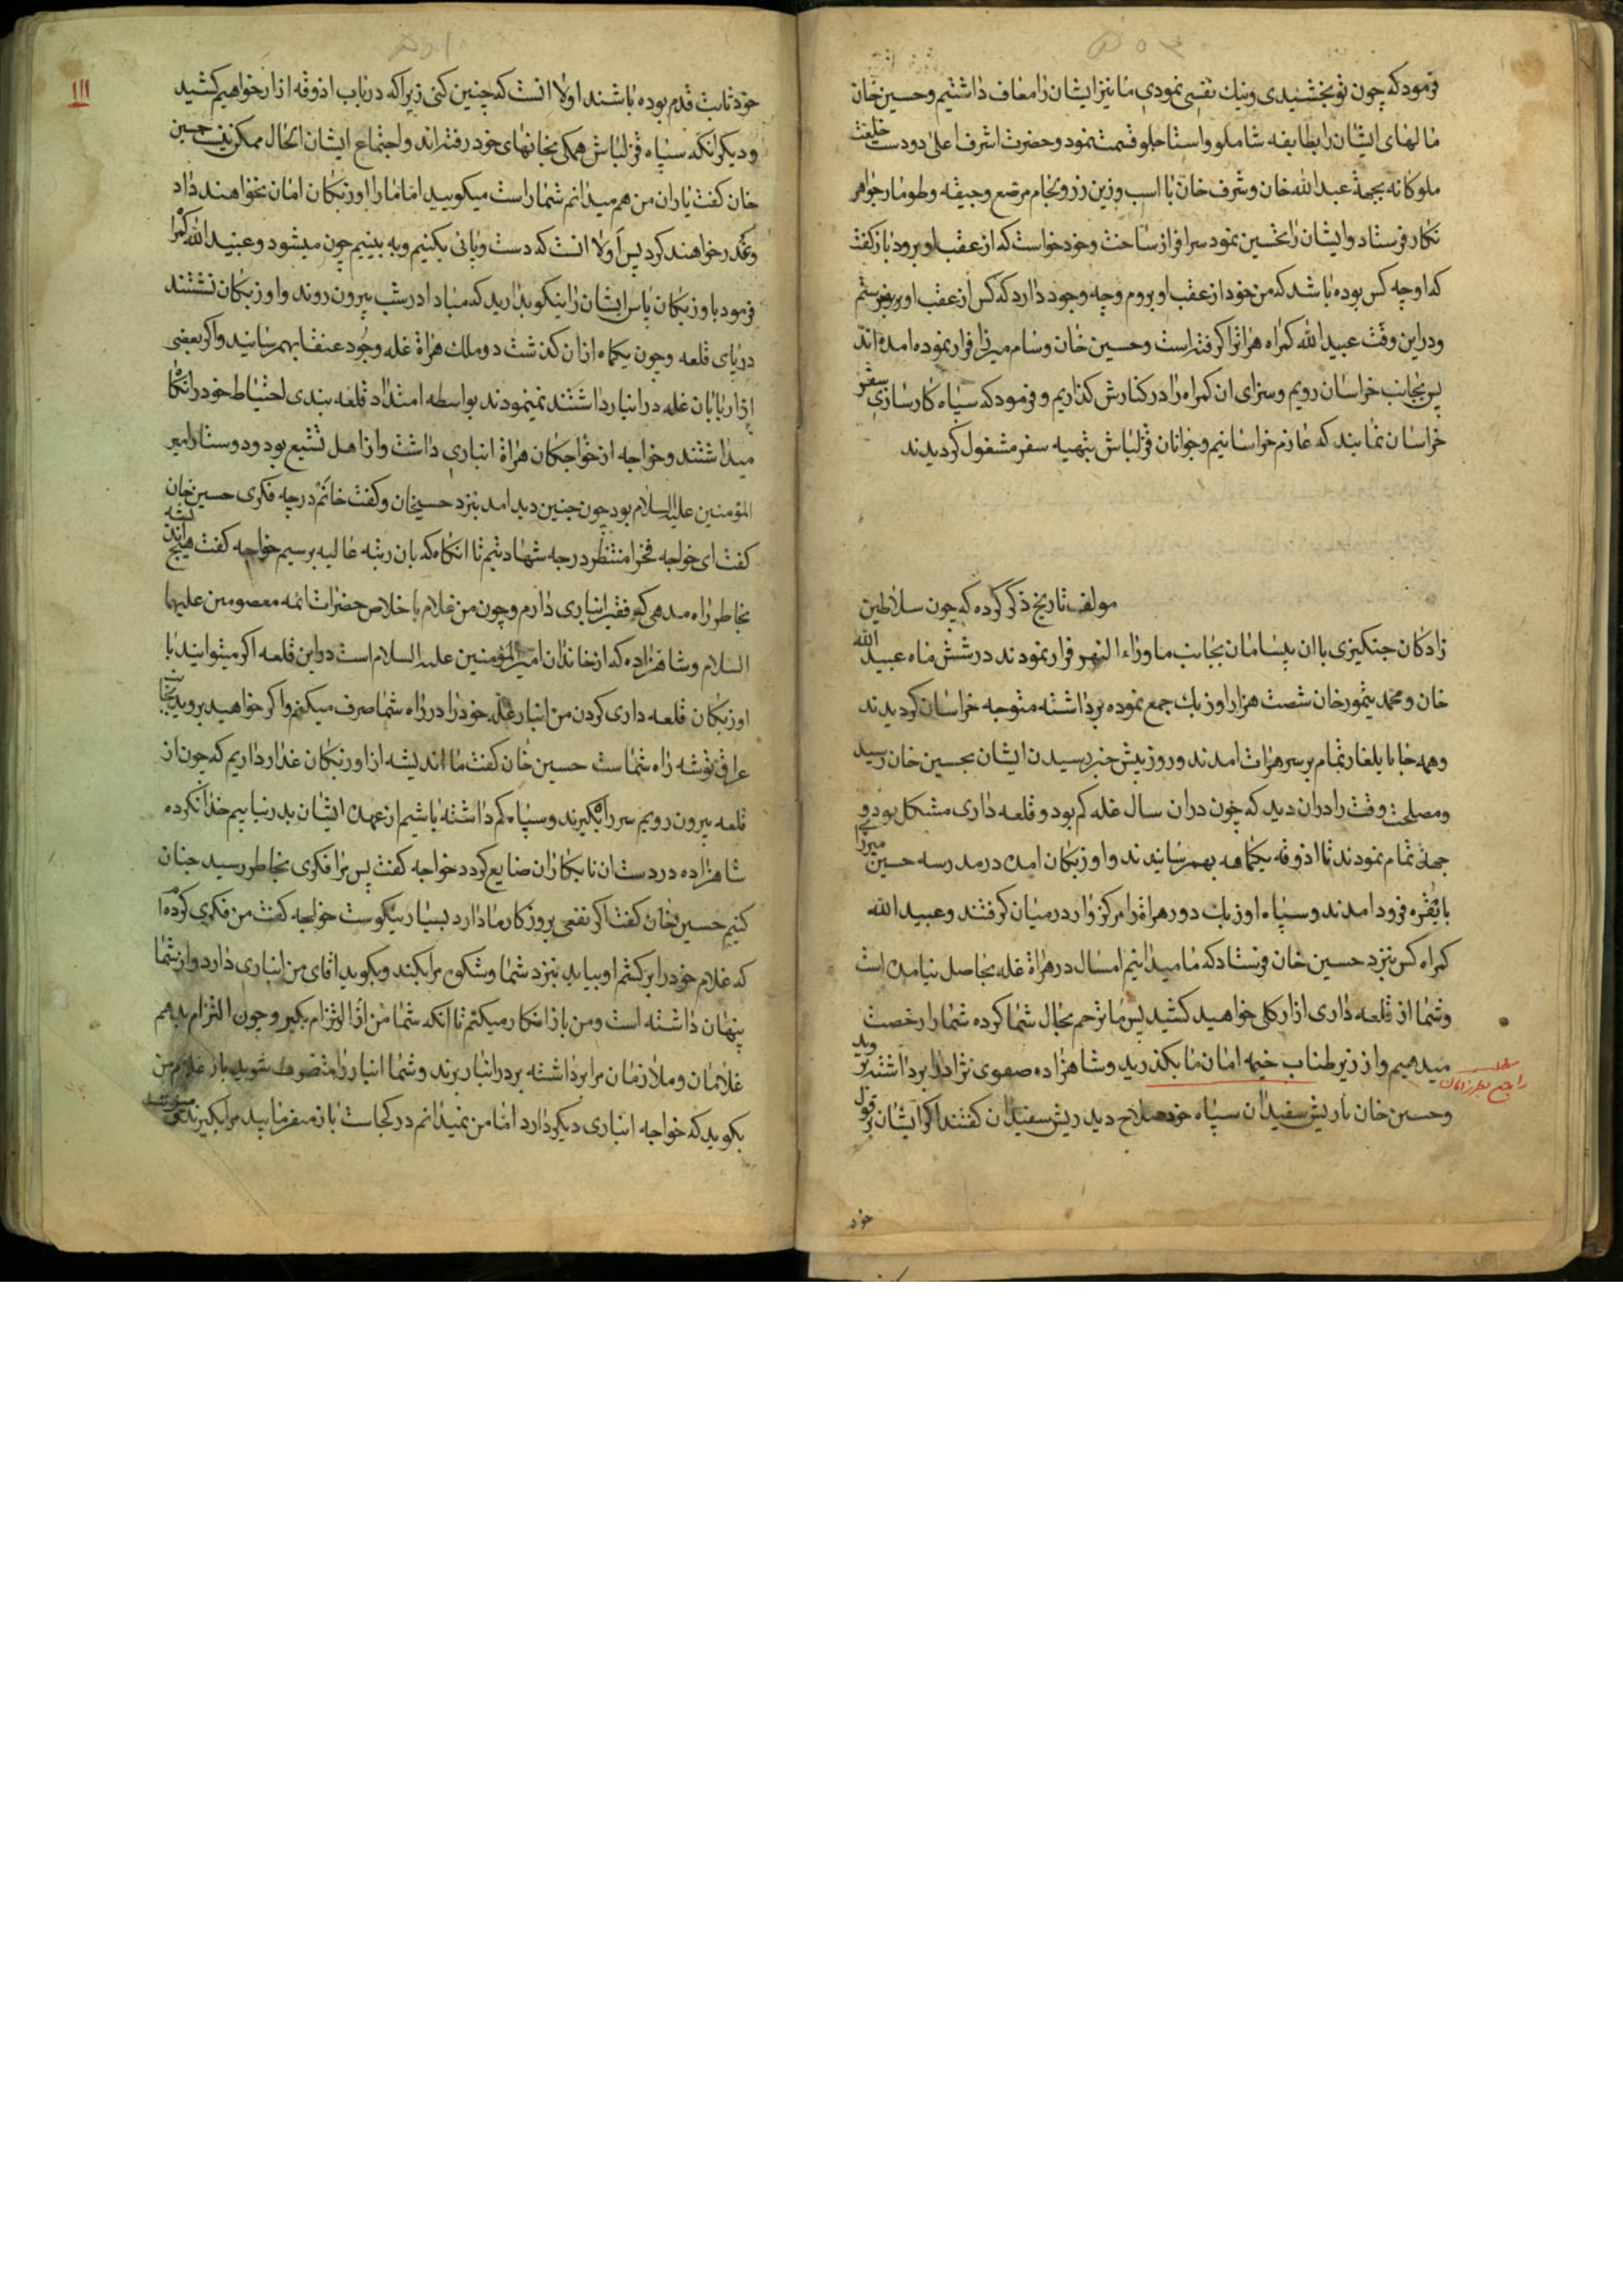 فرمود که چون تو بخشیدی و نیك نفسی نمودی ما نیز ایشان را معاف داشتیم و حسین خان
مالهای ایشان را بطایفه شاملو و استاجلو قسمت نمود و حضرت اشرف اعلی دو دست خلعت
ملوکانه بجهة عبدالله خان و شرف خان با اسب و زین زر و لجام مرصع و جیقه و طومار جواهر
نکار فرستاد و ایشان را تحسین نمود سرافراز ساخت و خود خواست که از عقب او برود باز گفت
که او چه کس بوده باشد که من خود از عقب او بروم و چه وجود دارد که کس از عقب او بفرستم
و در این وقت عبیدالله کمراه هراة را کرفته است و حسین خان و سام میرزا فرار نموده امده اند
پس بجانب خراسان رویم و سزای ان کمراه را در کنارش کذاریم و فرمود که سپاه کارسازی سفر
خراسان نمایند که عازم خراسانیم و جوانان قزلباش بتهیه سفر مشغول کردیدند
مولف تاریخ ذکر کرده که چون سلاطین
زادکان جنکیزی با ان بیسامان بجانب ماوراء النهر فرار نمودند در شش ماه عبید الله
خان و محمد تیمور خان شصت هزار اوزبك جمع نموده برداشته متوجه خراسان کردیدند
و همه جا با یلغار تمام بر سر هرات امدند و روز پیش خبر رسیدن ایشان بحسین خان رسید
و مصلحت وقت را در ان دید که چون دران سال غله کم بود و قلعه داری مشکل بود و
جهة تمام نمودند تا اذوقه یکماهه بهم رسانیدند و اوزبکان امده در مدرسه حسین میرزا
بایقره فرود امدند و سپاه اوزبك دور هراة را مرکز وار در میان کرفتند و عبیدالله
کمراه کس بنزد حسین خان فرستاد که ما میدانیم امسال در هراة غله بحاصل نیامده است
و شما از قلعه داری ازار کلی خواهید کشید پس ما ترحم بحال شما کرده شما را رخصت
میدهیم و از زیر طناب خیمه امان ما بکذرید و شاهزاده صفوی نژاد را برداشته بروید
و حسین خان با ریش سفیدان سپاه خود صلاح دید ریش سفیدان کفتند اکر ایشان بر قول
خود
ااا
خود ثابت قدم بوده باشند اولا انست که چنین کنی زیرا که در باب اذوقه ازار خواهیم کشید
و دیکر انکه سپاه قزلباش همکی بخانهای خود رفته اند و اجتماع ایشان الحال ممکن نیست حسین
خان کفت یاران من هم میدانم شما راست میکویید اما ما را اوزبکان امان نخواهند داد
و غدر خواهند کرد پس اولا انست که دست و پائی بکنیم و به بینیم چون میشود و عبیدالله کمراه
فرمود با اوزبکان پاس ایشان را نیکو بدارید که مبادا در شب بیرون روند و اوزبکان نشستند
در پای قلعه و چون یکماه از ان کذشت در ملك هراة غله وجود عنقا بهم رسانید و اکر بعضی
از اربابان غله در انبار داشتند نمینمودند بواسطه امتداد قلعه بندی احتیاط خود را نکاه
میداشتند و خواجه از خواجکان هراة انباری داشت و از اهل تشیع بود و دوستدار امیر
المؤمنین علیه السلام بود چون چنین دید امد بنزد حسینخان و کفت خانم در چه فکری حسین خان
کفت ای خواجه فخرا منتظر درجه شهادتیم تا انکاه که بان رتبه عالیه برسیم خواجه کفت هیچ اندیشه
بخاطر راه مده که فقیر انباری دارم و چون من غلام با خلاص حضرات ائمه معصومین علیهما
السلام و شاهزاده که از خاندان امیرالمؤمنین علیه السلام است در این قلعه اکر میتوانید با
اوزبکان قلعه داری کردن من انبار غله خود را در راه شما صرف میکنم و اکر خواهید بروید بجانب
عراق توشه راه شماست حسین خان کفت ما اندیشه از اوزبکان غدار داریم که چون از
قلعه بیرون رویم سر راه بکیرند و سپاه کم داشته باشیم از عهده ایشان بدر نیاییم خدا نکرده
شاهزاده در دست ان نابکاران ضایع کردد خواجه کفت پس ترا فکری بخاطر رسید چنان
کنیم حسین خان کفت اکر نفعی بروزکار ما دارد بسیار نیکوست خواجه کفت من فکری کرده ام
که غلام خود را بر کشم او بیاید بنزد شما و شکوه مرا بکند و بکوید اقای من انباری دارد و از شما
پنهان داشته است و من باز انکار میکنم تا انکه شما از من التزام بکیر و چون التزام بدهم
غلامان و ملازمان مرا برداشته بر در انبار برند و شما انبار را متصرف شوید باز غلام من
بکوید که خواجه انباری دیکر دارد اما من نمیدانم در کجاست باز میفرمایید مرا بکیرند